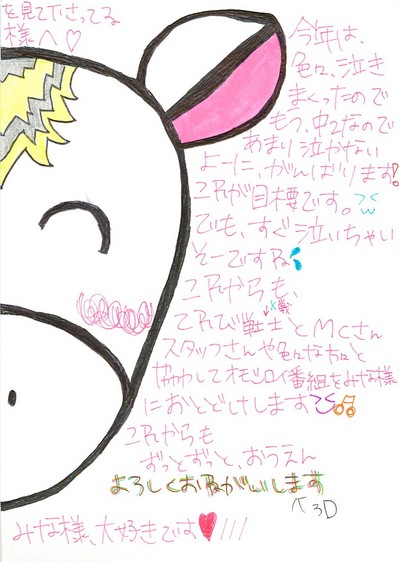 を見て下さってる
様へ♡
今年は、
色々、泣き
まくったので
もう、中2なので
あまり泣かない
よーに、がんばります!
これが目標です。
でも、すぐ泣いちゃい
そーですね
これからも、
てれび戦士とMCさん
×戦
スタッフさんや色々な方々と
協力してオモシロイ番組をみな様
におとどけします
これからも
ずっとずっと、おうえん
よろしくお願いします
↑3D
みな様、大好きです♥///